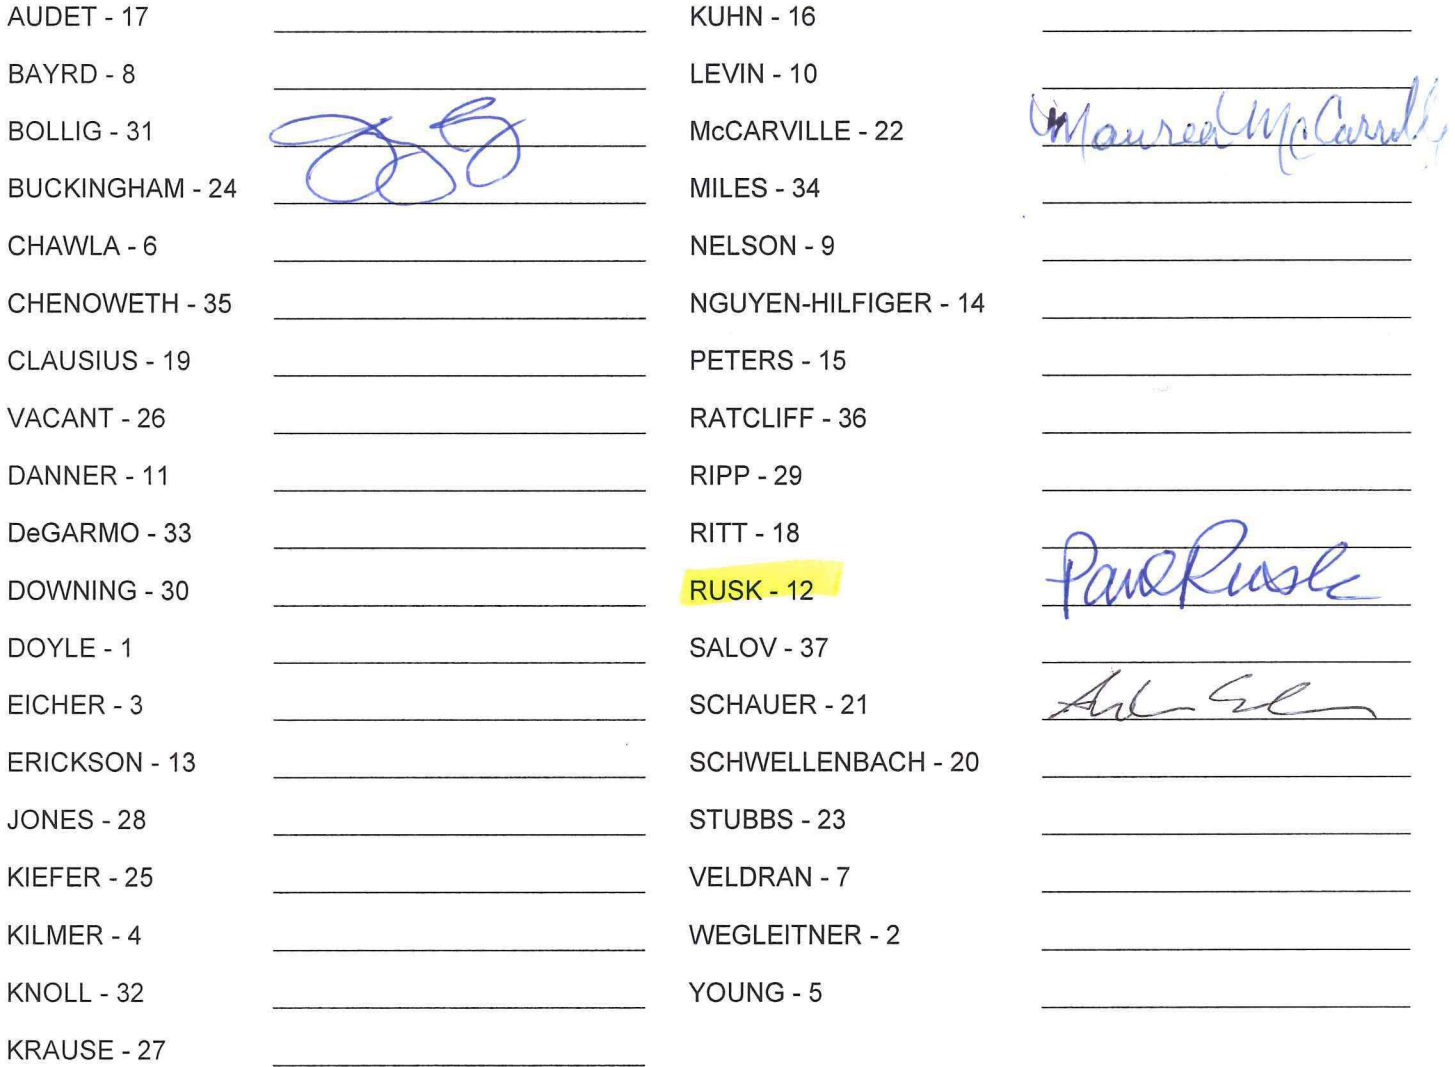 AUDET - 17
BAYRD - 8
BOLLIG - 31
BUCKINGHAM - 24
CHAWLA - 6
CHENOWETH - 35
CLAUSIUS - 19
VACANT - 26
DANNER - 11
DeGARMO - 33
DOWNING - 30
DOYLE - 1
EICHER - 3
ERICKSON - 13
JONES - 28
KIEFER - 25
KILMER - 4
KNOLL - 32
KRAUSE - 27
KUHN - 16
LEVIN - 10
McCARVILLE - 22 Maureen McCarville
MILES - 34
NELSON - 9
NGUYEN-HILFIGER - 14
PETERS - 15
RATCLIFF - 36
RIPP - 29
RITT - 18
RUSK - 12 Paul Rusk
SALOV - 37
SCHAUER - 21
SCHWELLENBACH - 20
STUBBS - 23
VELDRAN - 7
WEGLEITNER - 2
YOUNG - 5